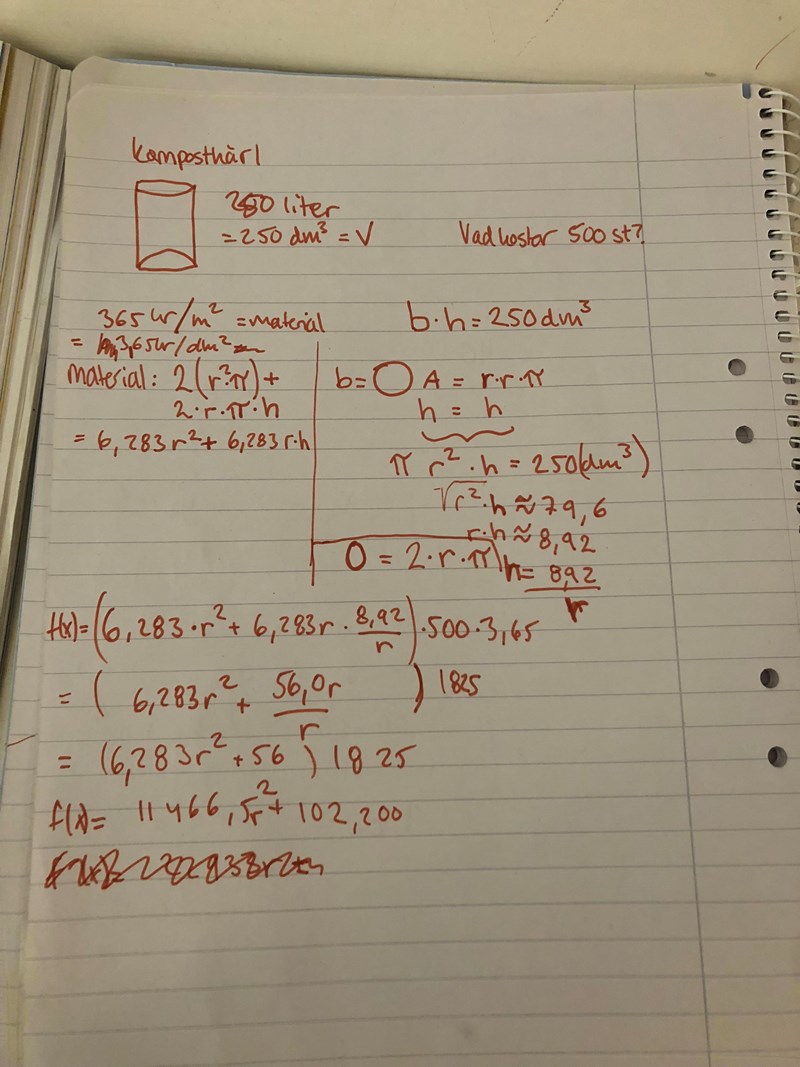 Komposthärl
250 liter
= 250 dm³ = V
Vad kostar 500 st?
365 kr/m² = material
= 3,65 kr/dm²
material: 2(r²·π) +
2·r·π·h
= 6,283r² + 6,283r·h
b·h = 250dm³
b= A = r·r·π
h = h
π r²·h = 250(dm³)
√r²·h ≈ 79,6
r·h ≈ 8,92
h = 8,92/r
O = 2·r·π
f(x) = (6,283·r² + 6,283r · 8,92/r)·500·3,65
= (6,283r² + 56,0r/r) 1825
= (6,283r² + 56) 1825
f(x) = 11466,5r² + 102,200